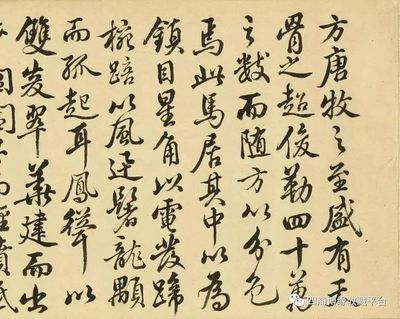 方唐牧之至盛有天
骨之超俊勒四十萬
之數而随方以分色
焉此馬居其中以為
鎮目星角以電發蹄
椀踣以風迅鬐龍顒
而孤起耳鳳聳以
雙峻翠華建而出
閶闔
收藏平台